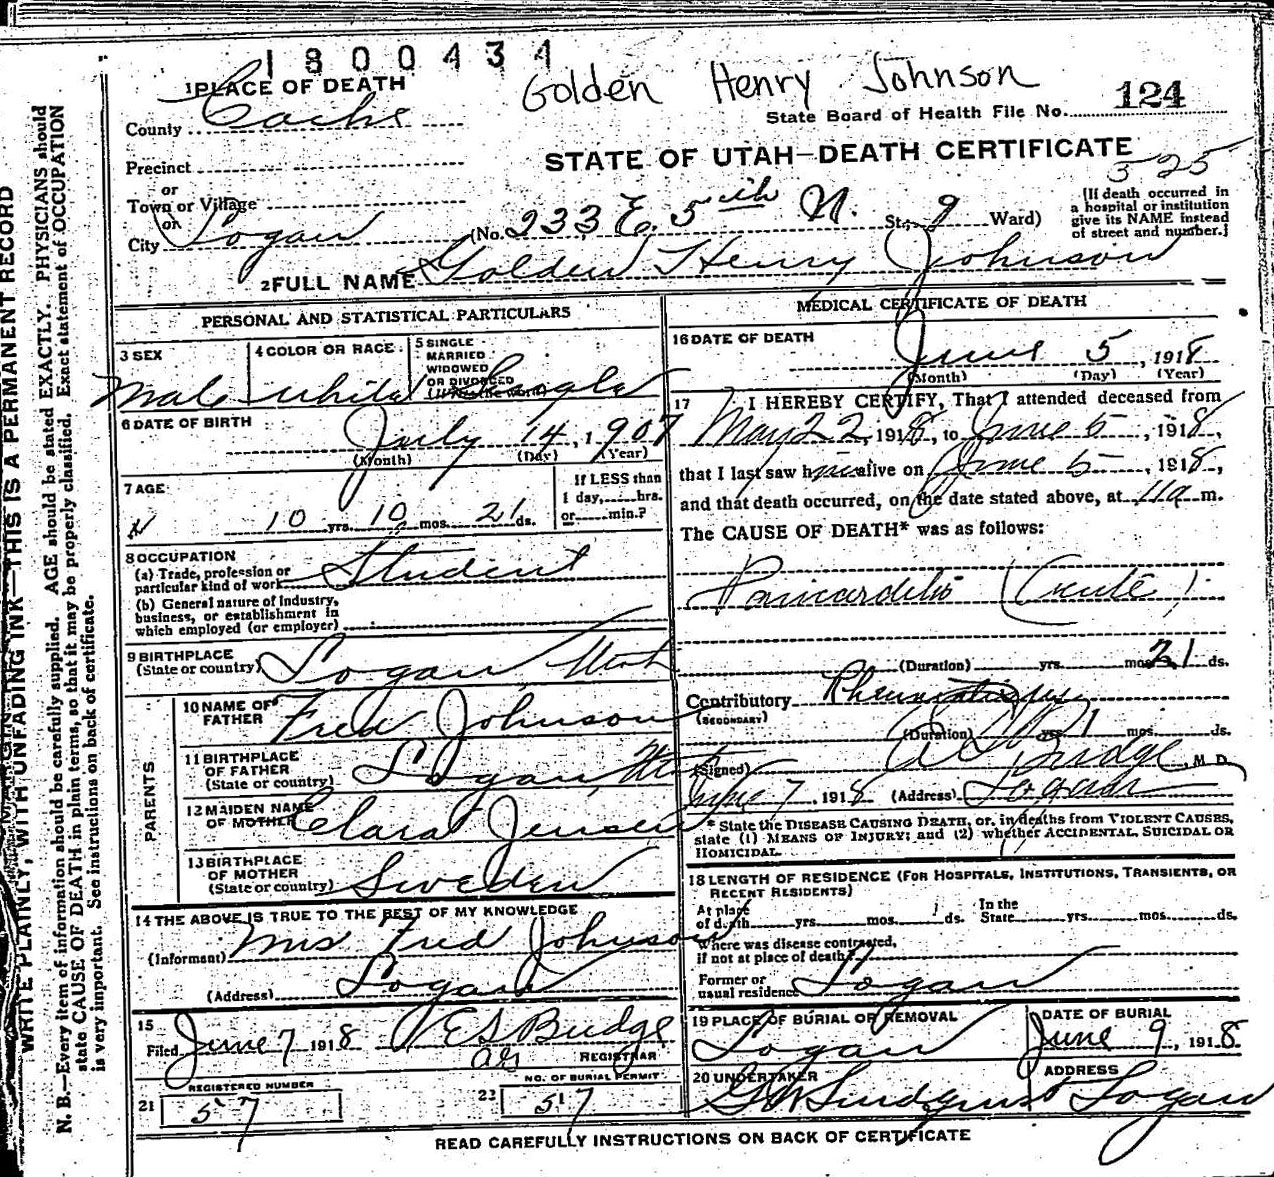 1800434
Golden Henry Johnson
1 PLACE OF DEATH
State Board of Health File No. 124
County Cache
STATE OF UTAH—DEATH CERTIFICATE
Precinct
525
or
Town or Village
or
City Logan (No. 233 E. 5th N. St; 9 Ward)
[If death occurred in
a hospital or institution
give its NAME instead
of street and number.]
2 FULL NAME Golden Henry Johnson
PERSONAL AND STATISTICAL PARTICULARS
3 SEX
Male
4 COLOR OR RACE
White
5 SINGLE
MARRIED
WIDOWED
OR DIVORCED
(Write the word)
Single
6 DATE OF BIRTH
July 14, 1907
(Month) (Day) (Year)
7 AGE
10 yrs. 10 mos. 21 ds.
If LESS than
1 day, hrs.
or min.?
8 OCCUPATION
(a) Trade, profession or
particular kind of work Student
(b) General nature of industry,
business, or establishment in
which employed (or employer)
9 BIRTHPLACE
(State or country) Logan Utah
PARENTS
10 NAME OF
FATHER Fred Johnson
11 BIRTHPLACE
OF FATHER
(State or country) Logan, Utah
12 MAIDEN NAME
OF MOTHER Clara Jensen
13 BIRTHPLACE
OF MOTHER
(State or country) Sweden
14 THE ABOVE IS TRUE TO THE BEST OF MY KNOWLEDGE
(Informant) Mrs Fred Johnson
(Address) Logan
15
Filed June 7 1918 E S Budge
REGISTRAR
REGISTERED NUMBER
21 57
NO. OF BURIAL PERMIT
22 57
MEDICAL CERTIFICATE OF DEATH
16 DATE OF DEATH
June 5, 1918
(Month) (Day) (Year)
17 I HEREBY CERTIFY, That I attended deceased from
May 22, 1918, to June 5, 1918,
that I last saw him alive on June 5, 1918,
and that death occurred, on the date stated above, at 11a m.
The CAUSE OF DEATH* was as follows:
(Duration) yrs. mos. 21 ds.
Contributory
(SECONDARY)
(Duration) yrs. mos. ds.
(Signed) Budge, M. D.
June 7, 1918 (Address) Logan
* State the DISEASE CAUSING DEATH, or, in deaths from VIOLENT CAUSES,
state (1) MEANS OF INJURY; and (2) whether ACCIDENTAL, SUICIDAL OR
HOMICIDAL.
18 LENGTH OF RESIDENCE (FOR HOSPITALS, INSTITUTIONS, TRANSIENTS, OR
RECENT RESIDENTS)
At place
of death yrs. mos. ds.
In the
State yrs. mos. ds.
Where was disease contracted,
if not at place of death?
Former or
usual residence Logan
19 PLACE OF BURIAL OR REMOVAL
Logan
DATE OF BURIAL
June 9, 1918.
20 UNDERTAKER
ADDRESS
Logan
READ CAREFULLY INSTRUCTIONS ON BACK OF CERTIFICATE
WRITE PLAINLY, WITH UNFADING INK—THIS IS A PERMANENT RECORD
N. B.—Every item of information should be carefully supplied. AGE should be stated EXACTLY. PHYSICIANS should
state CAUSE OF DEATH in plain terms, so that it may be properly classified. Exact statement of OCCUPATION
is very important. See instructions on back of certificate.